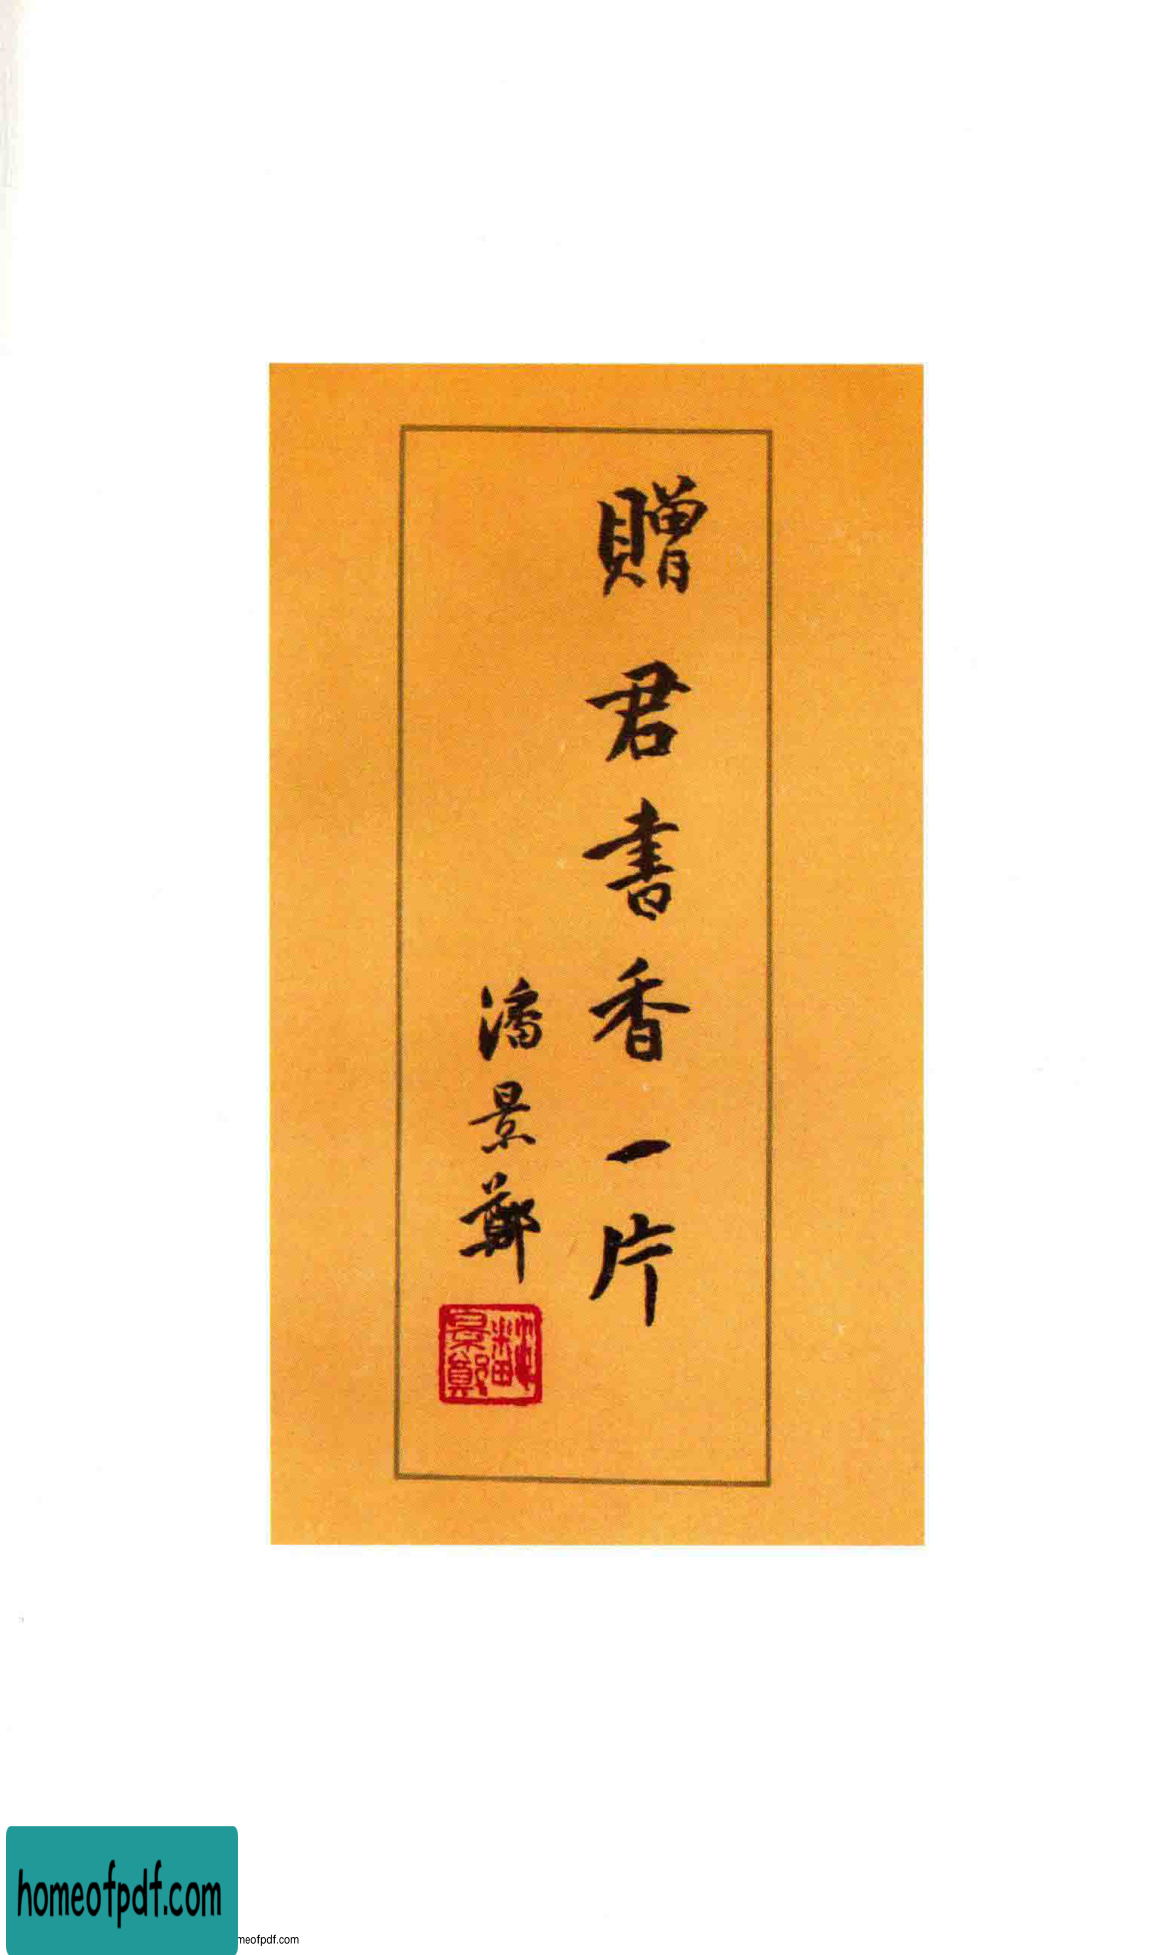 贈君書香一片
潘景鄭
潘景鄭
homeofpdf.com
meofpdf.com